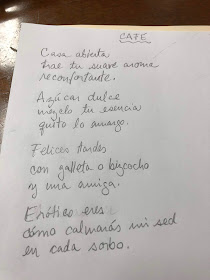 CAFÉ
Casa abierta
trae tu suave aroma
reconfortante.
Azúcar dulce
mezclo tu esencia
quito lo amargo.
Felices tardes
con galleta o bizcocho
y una amiga.
Exótico eres
cómo calmarás mi sed
en cada sorbo.